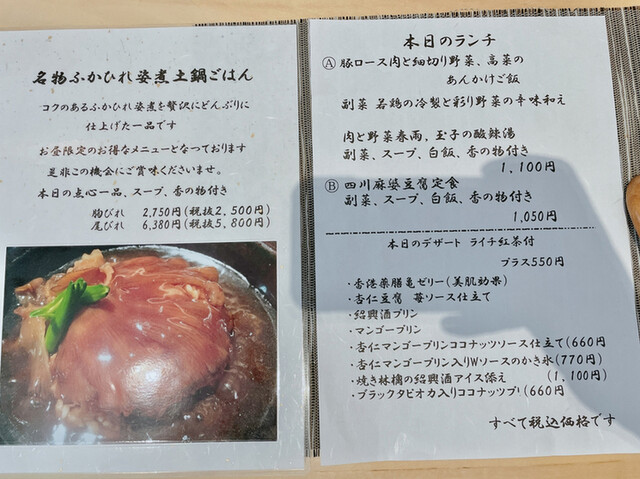 名物ふかひれ姿煮土鍋ごはん
コクのあるふかひれ姿煮を贅沢にどんぶりに
仕上げた一品です
お昼限定のお得なメニューとなっております
是非この機会にご賞味くださいませ。
本日の点心一品、スープ、香の物付き
胸びれ 2,750円(税抜2,500円)
尾びれ 6,380円(税抜5,800円)
本日のランチ
Ⓐ豚ロース肉と細切り野菜、高菜の
あんかけご飯
副菜 若鶏の冷製と彩り野菜の辛味和え
肉と野菜春雨、玉子の酸辣湯
副菜、スープ、白飯、香の物付き
1,100円
Ⓑ四川麻婆豆腐定食
副菜、スープ、白飯、香の物付き
1,050円
本日のデザート ライチ紅茶付
プラス550円
・香港薬膳亀ゼリー(美肌効果)
・杏仁豆腐 苺ソース仕立て
・紹興酒プリン
・マンゴープリン
・杏仁マンゴープリンココナッツソース仕立て(660円
・杏仁マンゴープリン入りWソースのかき氷(770円)
・焼き林檎の紹興酒アイス添え (1,100円)
・ブラックタピオカ入りココナッツプリ(660円
すべて税込価格です